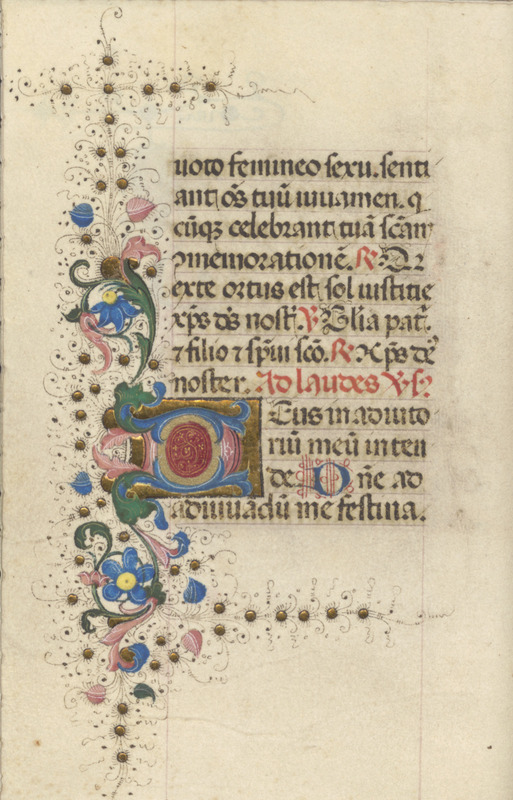 uoto femineo sexu. senti
ant oēs tuū iuuamen. q
cūqꝫ celebrant tuā scām
ꝯmemorationē. R̃. Or
exte ortus est sol iustitie
xp̄s ds̄ nost̃. V̓ Glia pat̃.
⁊ filio ⁊ sp̄iui scō. R̃ Xp̄s de᷒
noster. Ad laudes V̓ s̃:
Eus in adiuto
riū meū inten
de. Dn̄e ad
adiuuādū me festina.